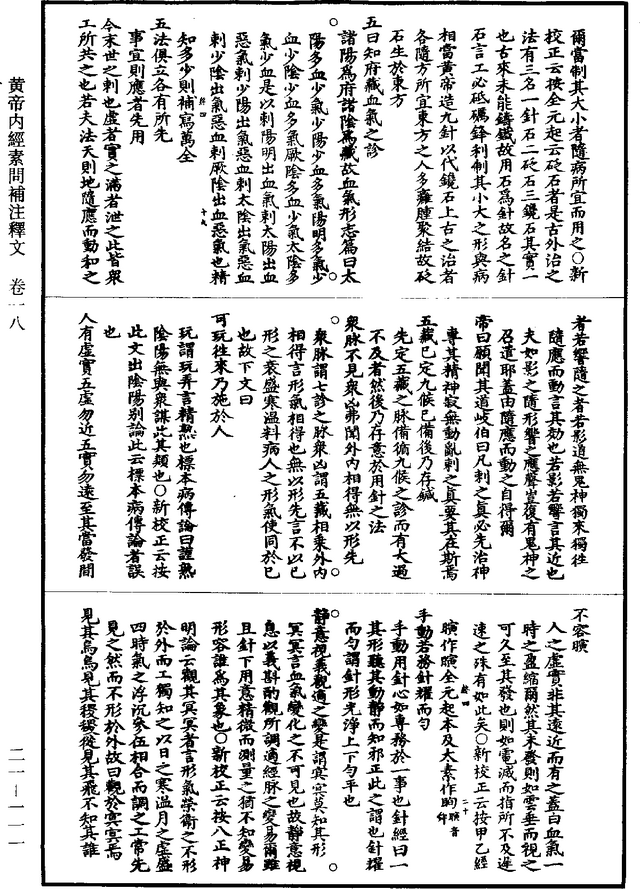 黄帝内經素問補注釋文　卷一八
二一—一一一
爾當制其大小者隨病所宜而用之○新
校正云按全元起云砭石者是古外治之
法有三名一針石二砭石三鑱石其實一
也古來未能鑄鐵故用石爲針故名之針
石言工必砥礪鋒利制其小大之形與病
相當黄帝造九針以代鑱石上古之治者
各隨方所宜東方之人多癰腫聚結故砭
石生於東方
五曰知府藏血氣之診
諸陽爲府諸陰爲藏故血氣形志篇曰太
陽多血少氣少陽少血多氣陽明多氣多
血少陰少血多氣厥陰多血少氣太陰多
氣少血是以刺陽明出血氣刺太陽出血
惡氣刺少陽出氣惡血刺太陰出氣惡血
刺少陰出氣惡血刺厥陰出血惡氣也精
知多少則補寫萬全
五法俱立各有所先
事宜則應者先用
今末世之刺也虛者實之滿者泄之此皆衆
工所共之也若夫法天則地隨應而動和之
者若響隨之者若影道無鬼神獨來獨往
隨應而動言其効也若影若響言其近也
夫如影之隨形響之應聲豈復有鬼神之
召遣耶蓋由隨應而動之自得爾
帝曰願聞其道岐伯曰凡刺之真必先治神
專其精神寂無動亂刺之真要其在斯焉
五藏已定九候已備後乃存鍼
先定五藏之脉備循九候之診而有太過
不及者然後乃存意於用針之法
衆脉不見衆凶弗聞外内相得無以形先
衆脉謂七診之脉衆凶謂五藏相乘外内
相得言形氣相得也無以形先言不以已
形之衰盛寒温料病人之形氣使同於已
也故下文曰
可玩往來乃施於人
玩謂玩弄言精熟也標本病傳論曰謹熟
陰陽無與衆謀此其類也○新校正云按
此文出陰陽别論此云標本病傳論者誤
也
人有虛實五虛勿近五實勿遠至其當發間
不容瞚
人之虛實非其遠近而有之蓋由血氣一
時之盈縮爾然其未發則如雲垂而視之
可久至其發也則如電滅而指所不及遲
速之殊有如此矣○新校正云按甲乙經
瞚作瞋全元起本及太素作眴
手動若務針耀而匀
手動用針心如專務於一事也針經曰一
其形聽其動静而知邪正此之謂也針耀
而匀謂針形光浄上下匀平也
静意視義觀適之變是謂冥冥莫知其形
冥冥言血氣變化之不可見也故静意視
息以義斟酌觀所調適經脉之變易爾雖
且針下用意精微而測量之猶不知變易
形容誰爲其象也○新校正云按八正神
明論云觀其冥冥者言形氣榮衛之不形
於外而工獨知之以日之寒温月之虛盛
四時氣之浮沉參伍相合而調之工常先
見之然而不形於外故曰觀於冥冥焉
見其烏烏見其稷稷從見其飛不知其誰